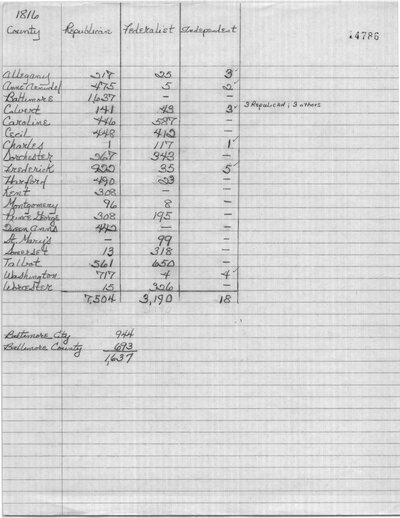 1816
County Republican Federalist Independent
14786
Allegany 217 25 3
Anne Arundel 475 5 2
Baltimore 1,637 — —
Calvert 141 43 3 3 Republican; 3 others
Caroline 446 587 —
Cecil 448 412 —
Charles 1 117 1
Dorchester 267 343 —
Frederick 922 35 5
Harford 490 23 —
Kent 308 — —
Montgomery 96 8 —
Prince George 308 195 —
Queen Anne 442 — —
St. Mary's — 99 —
Somerset 13 318 —
Talbot 561 650 —
Washington 717 4 4
Worcester 15 326 —
7,504 3,190 18
Baltimore City 944
Baltimore County 693
1,637